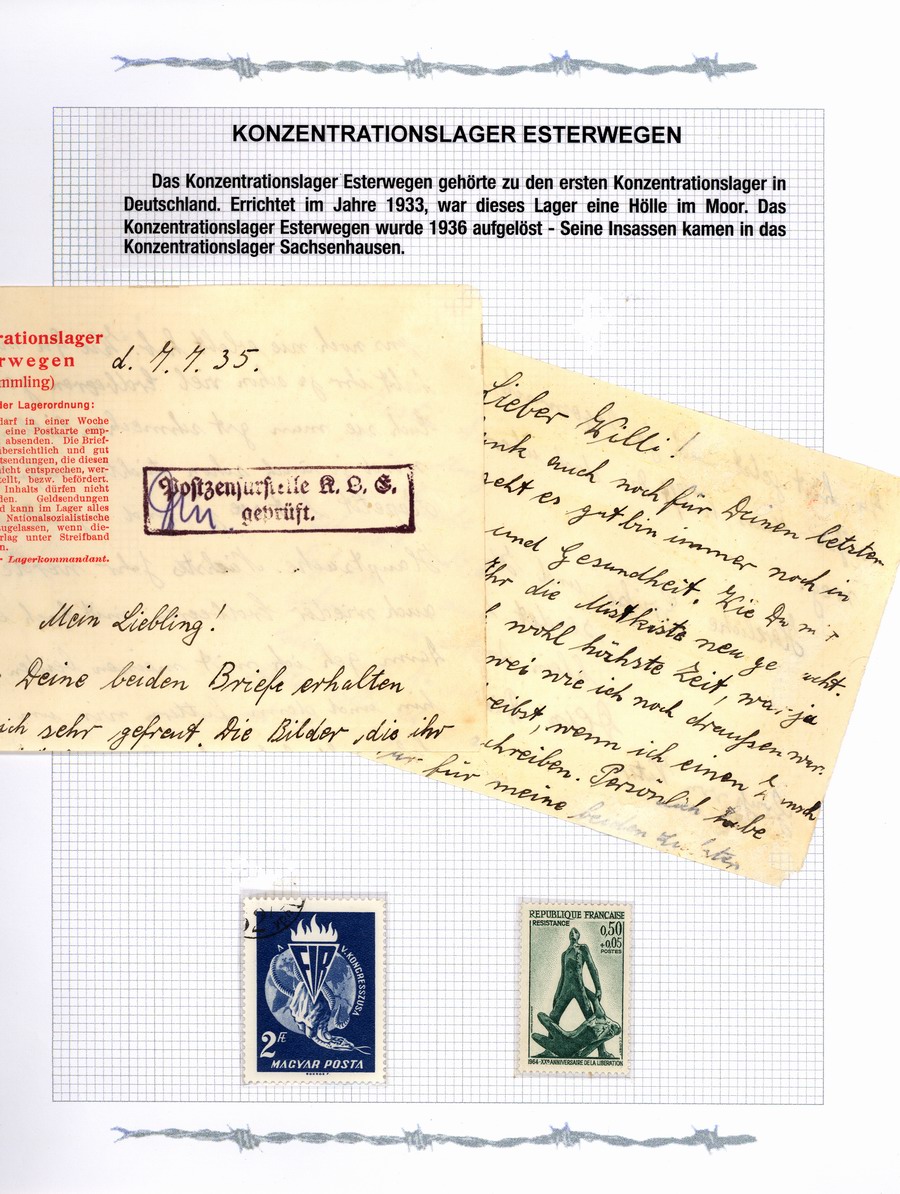 KONZENTRATIONSLAGER ESTERWEGEN
Das Konzentrationslager Esterwegen gehörte zu den ersten Konzentrationslager in
Deutschland. Errichtet im Jahre 1933, war dieses Lager eine Hölle im Moor. Das
Konzentrationslager Esterwegen wurde 1936 aufgelöst - Seine Insassen kamen in das
Konzentrationslager Sachsenhausen.
rationslager
rwegen
mmling)
der Lagerordnung:
darf in einer Woche
eine Postkarte emp-
absenden. Die Brief-
übersichtlich und gut
tsendungen, die diesen
nicht entsprechen, wer-
tellt, bezw. befördert.
Inhalts dürfen nicht
den. Geldsendungen
d kann im Lager alles
Nationalsozialistische
zugelassen, wenn die-
rlag unter Streifband
n.
- Lagerkommandant.
d. 7. 7. 35.
Postzensurstelle K. L. E.
geprüft.
Mein Liebling!
Deine beiden Briefe erhalten
ich sehr gefreut. Die Bilder, die ihr
Lieber Willi!
ank auch noch für Deinen letzten
geht es gut bin immer noch in
und Gesundheit. Wie Du mir
Ihr die Mistkiste neu ge acht.
wohl höchste Zeit, war ja
wei wie ich noch draußen war.
reibst, wenn ich einen unsch
chreiben. Persönlich habe
nur für meine beiden
2 Ft
FIR
A V. KONGRESSZUSA
MAGYAR POSTA
REPUBLIQUE FRANCAISE
RESISTANCE
0,50
+0,05
POSTES
1964-XXe ANNIVERSAIRE DE LA LIBERATION